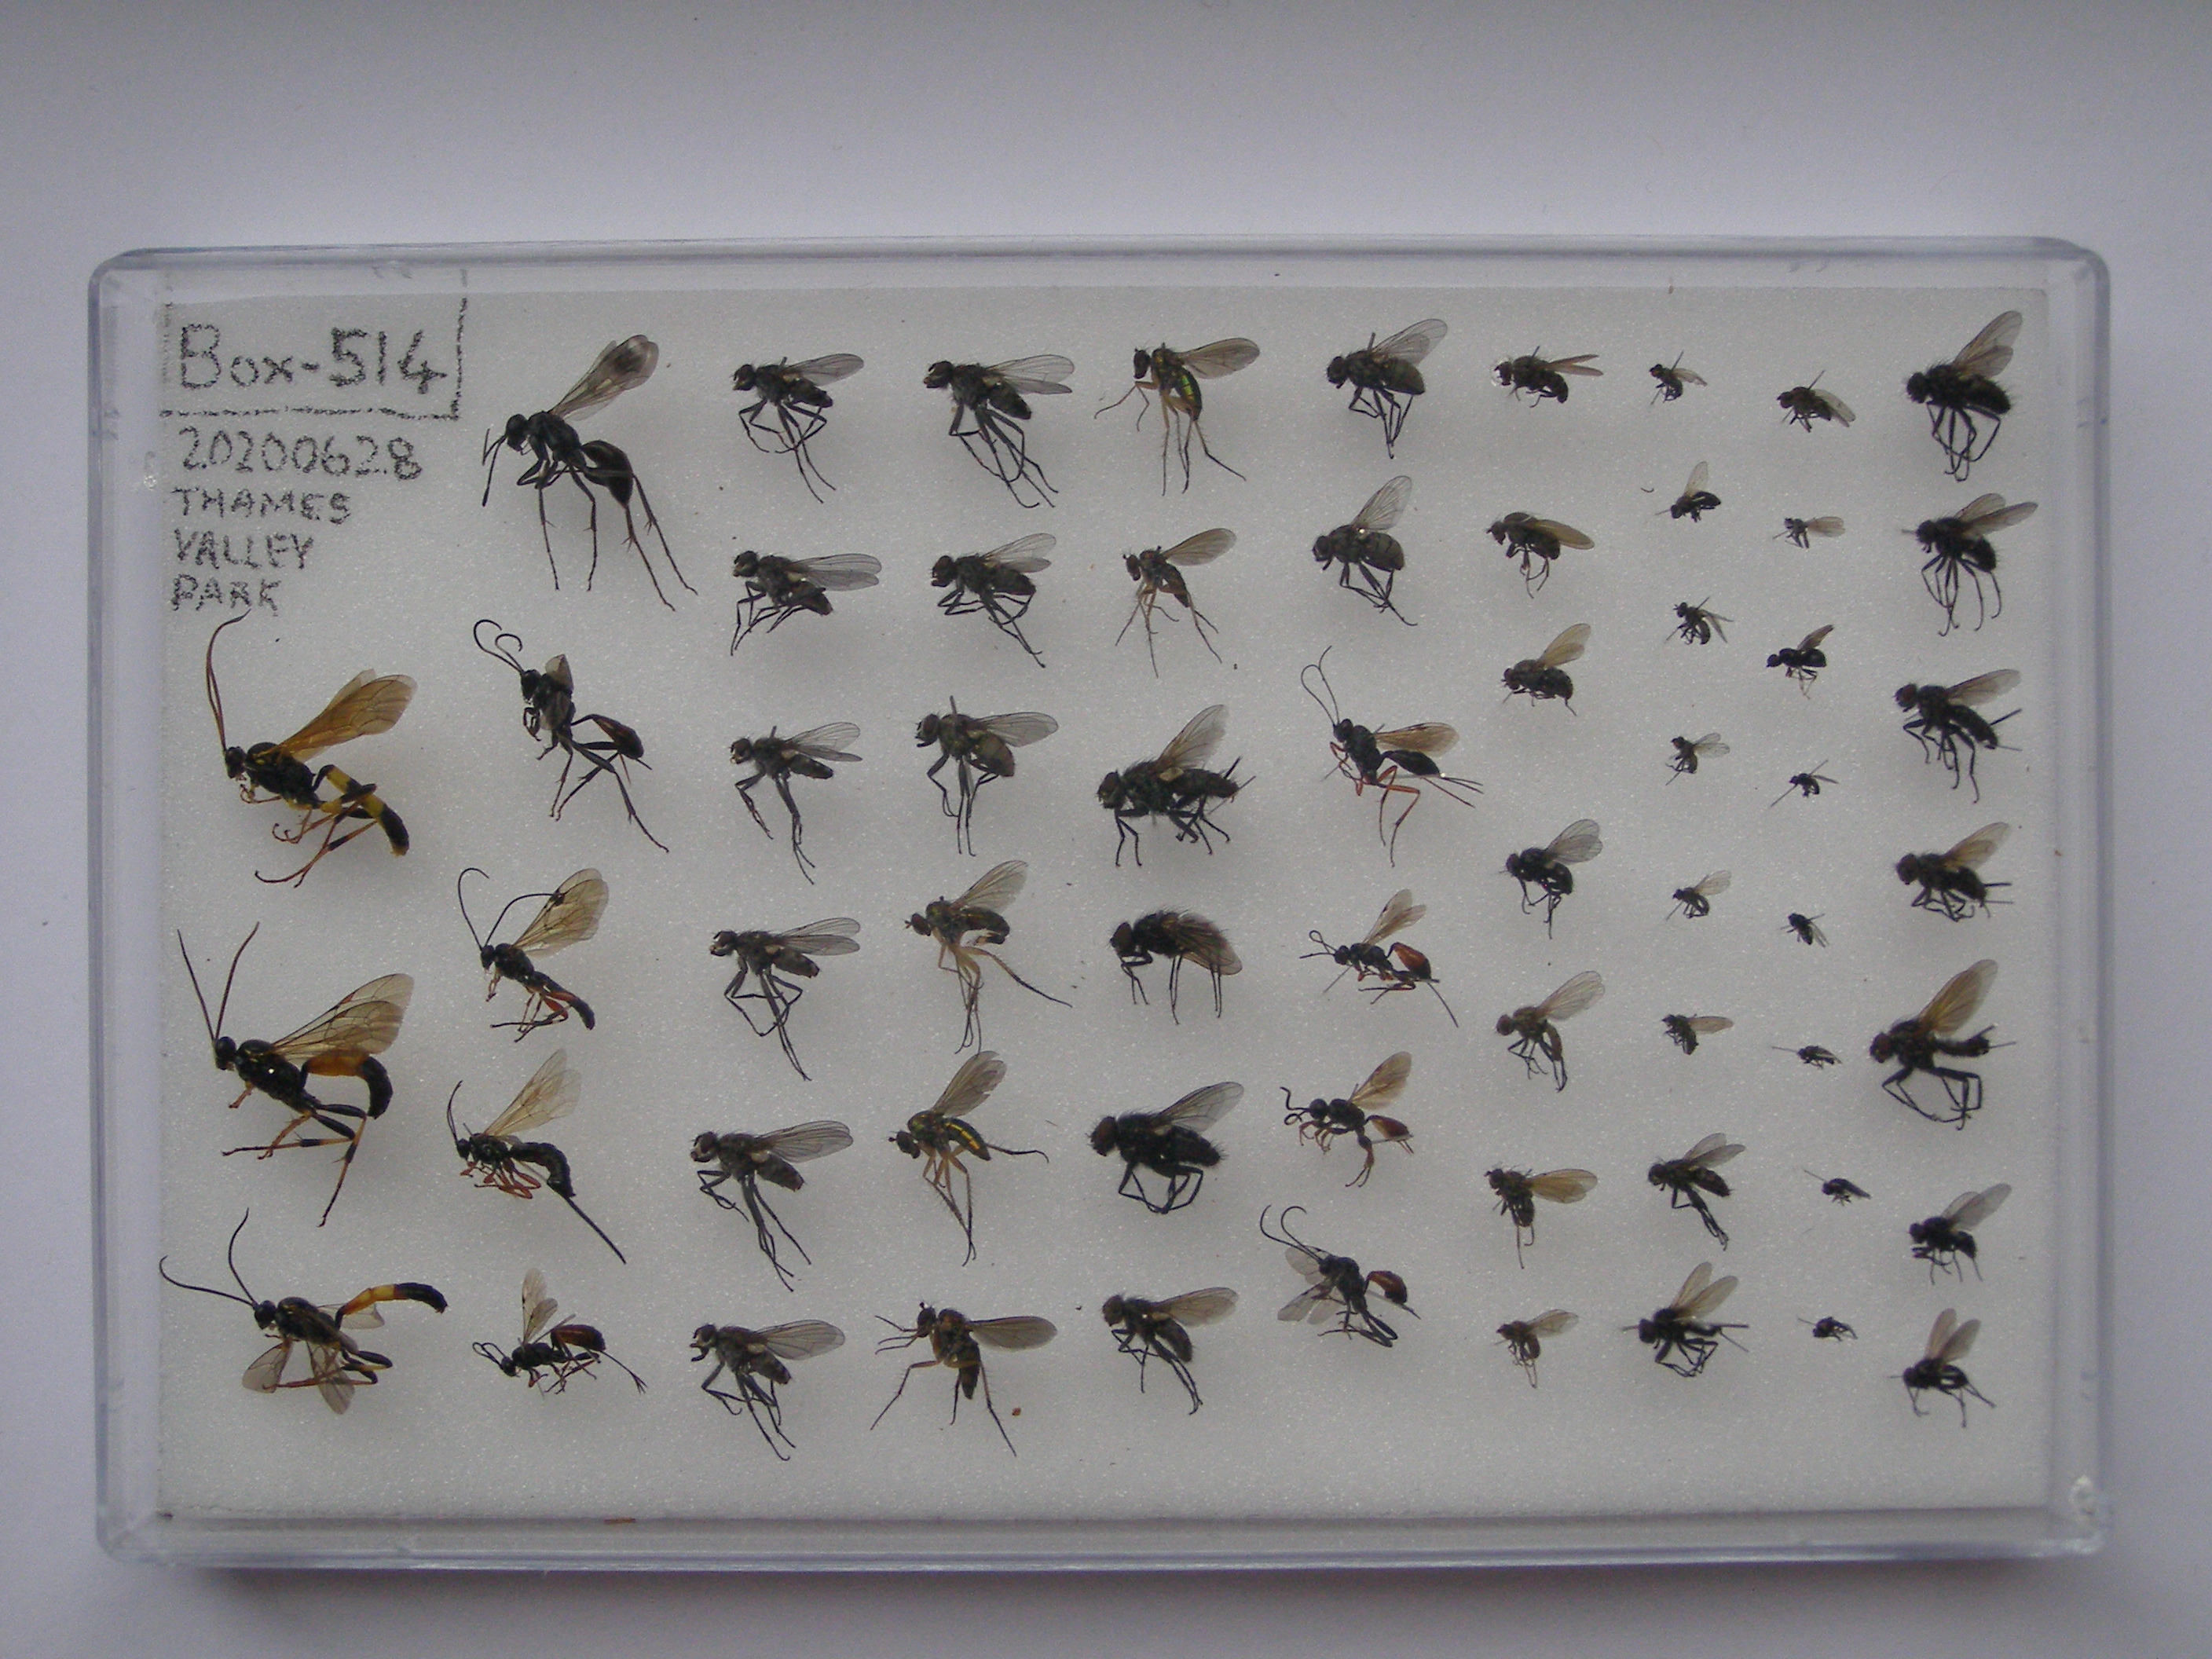 Box-514
20200628
THAMES
VALLEY
PARK